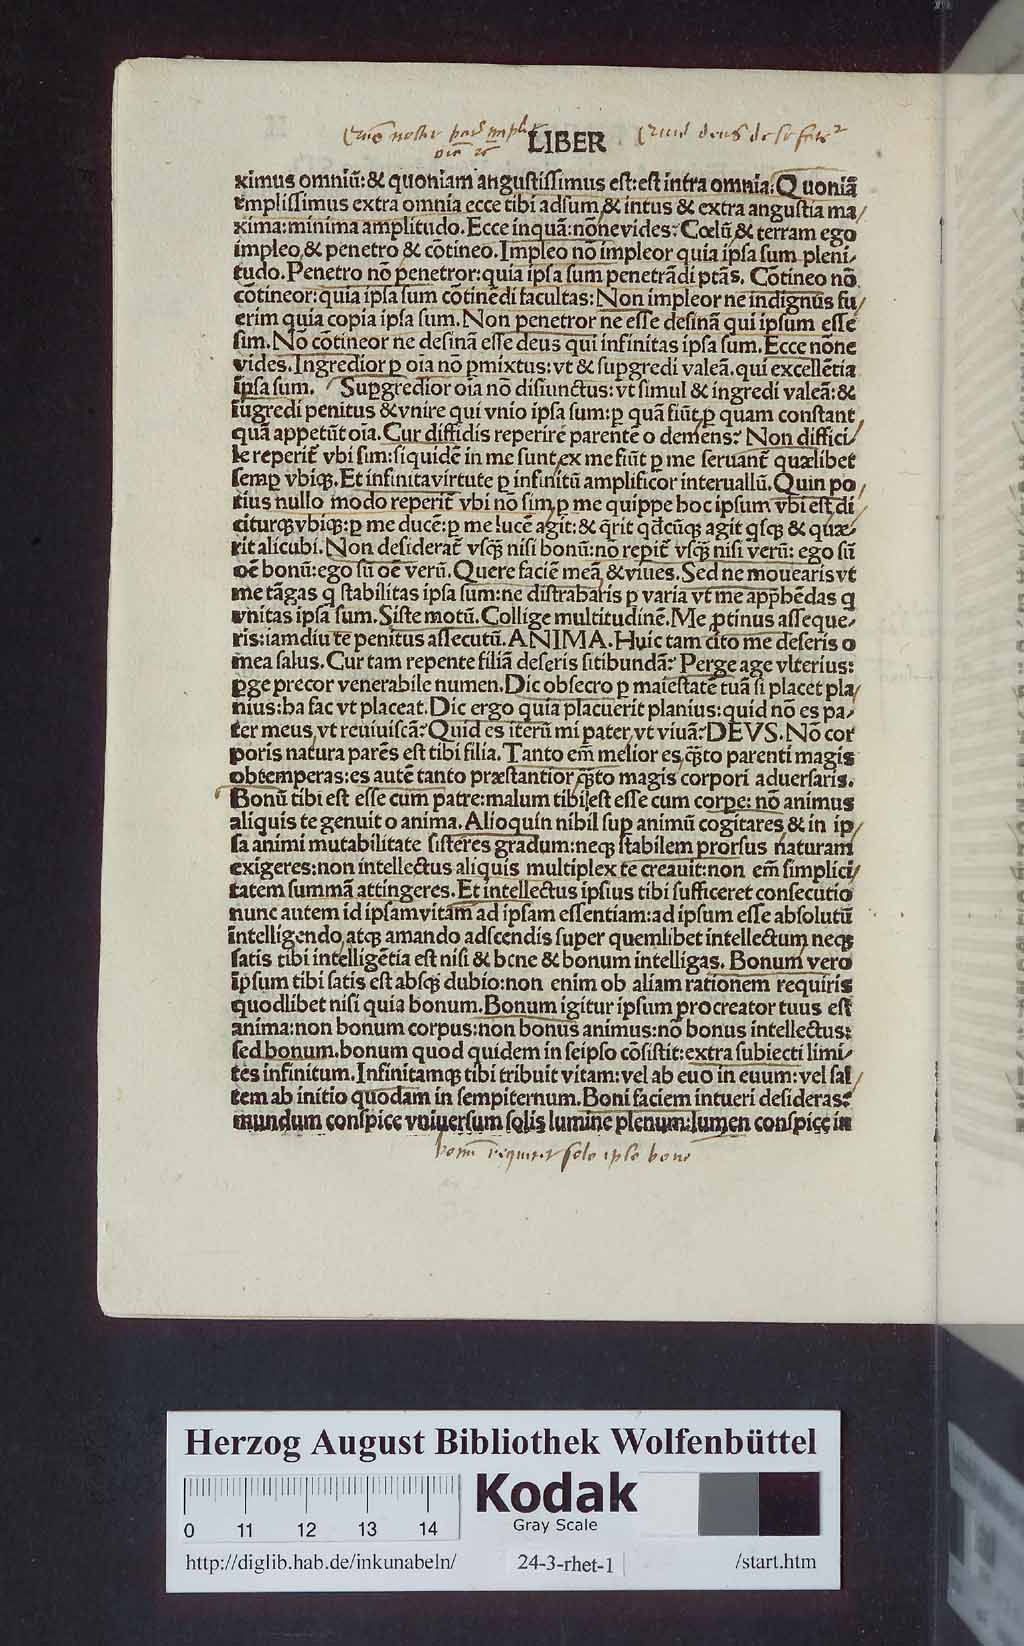 LIBER
ximus omniū:& quoniam angustissimus est:est intra omnia. Quoniā
emplissimus extra omnia ecce tibi adsum & intus & extra angustia ma/
xima:minima amplitudo. Ecce inquā:nōne vides? Cœlū & terram ego
impleo & penetro & cōtineo. Impleo nō impleor quia ipsa sum pleni/
tudo. Penetro nō penetror:quia ipsa sum penetrādi ptās. Cōtineo nō
cōtineor:quia ipsa sum cōtinēdi facultas: Non impleor ne indignus fu/
erim quia copia ipsa sum. Non penetror ne esse desinā qui ipsum esse
sim. Nō cōtineor ne desinā esse deus qui infinitas ipsa sum. Ecce nōne
vides. Ingredior ꝑ oīa nō ꝑmixtus: vt & suꝑgredi valeā. qui excellētia
ipsa sum. Suꝑgredior oīa nō disiunctus: vt simul & ingredi valeā: &
iugredi penitus & vnire qui vnio ipsa sum: ꝑ quā fiūt ꝑ quam constant
quā appetūt oīa. Cur diffidis reperire parentē o demens? Non diffici/
le reperit̄ vbi sim: siquidē in me sunt ex me fiūt ꝑ me seruant̄ quælibet
semꝑ vbiqꝫ. Et infinita virtute ꝑ infinitū amplificor interuallū. Quin po/
tius nullo modo reperit̄ vbi nō sim, ꝑ me quippe hoc ipsum vbi est di
citurqꝫ vbiqꝫ: ꝑ me ducē: ꝑ me lucē agit̄: & q̄rit qd̄cūqꝫ agit qsqꝫ & quæ/
rit alicubi. Non desiderat̄ vsqꝫ nisi bonū: nō reꝑit̄ vsqꝫ nisi verū: ego sū
oē bonū: ego sū oē verū. Quere faciē meā & viues. Sed ne mouearis vt
me tāgas q stabilitas ipsa sum: ne distraharis ꝑ varia vt me appꝛhēdas q
vnitas ipsa sum. Siste motū. Collige multitudinē. Me ꝓtinus asseque/
ris: iamdiu te penitus assecutū. ANIMA. Huic tam cito me deseris o
mea salus. Cur tam repente filiā deseris sitibundā? Perge age vlterius:
ꝑge precor venerabile numen. Dic obsecro ꝑ maiestatē tuā si placet pla/
nius: ha fac vt placeat. Dic ergo quia placuerit planius: quid nō es pa/
ter meus, vt reuiuiscā? Quid es iterū mi pater, vt viuā? DEVS. Nō cor
poris natura parēs est tibi filia. Tanto em̄ melior es, qꝫto parenti magis
obtemperas: es autē tanto præstantior qꝫto magis corpori aduersaris.
Bonū tibi est esse cum patre: malum tibi est esse cum corpe: nō animus
aliquis te genuit o anima. Alioquin nihil suꝑ animū cogitares & in ip/
sa animi mutabilitate sisteres gradum: neqꝫ stabilem prorsus naturam
exigeres: non intellectus aliquis multiplex te creauit: non em̄ simplici/
tatem summā attingeres. Et intellectus ipsius tibi sufficeret consecutio
nunc autem id ipsam vitam ad ipsam essentiam: ad ipsum esse absolutū
intelligendo, atqꝫ amando adscendis super quemlibet intellectum neqꝫ
satis tibi intelligētia est nisi & bene & bonum intelligas. Bonum vero
ipsum tibi satis est absqꝫ dubio: non enim ob aliam rationem requiris
quodlibet nisi quia bonum. Bonum igitur ipsum procreator tuus est
anima: non bonum corpus: non bonus animus: nō bonus intellectus:
sed bonum. bonum quod quidem in seipso cōsistit: extra subiecti limi/
tes infinitum. Infinitamqꝫ tibi tribuit vitam: vel ab euo in euum: vel sal/
tem ab initio quodam in sempiternum. Boni faciem intueri desideras?
mundum conspice vniuersum solis lumine plenum: lumen conspice in
Herzog August Bibliothek Wolfenbüttel
Kodak
Gray Scale
0 11 12 13 14
http://diglib.hab.de/inkunabeln/ 24-3-rhet-1 /start.htm